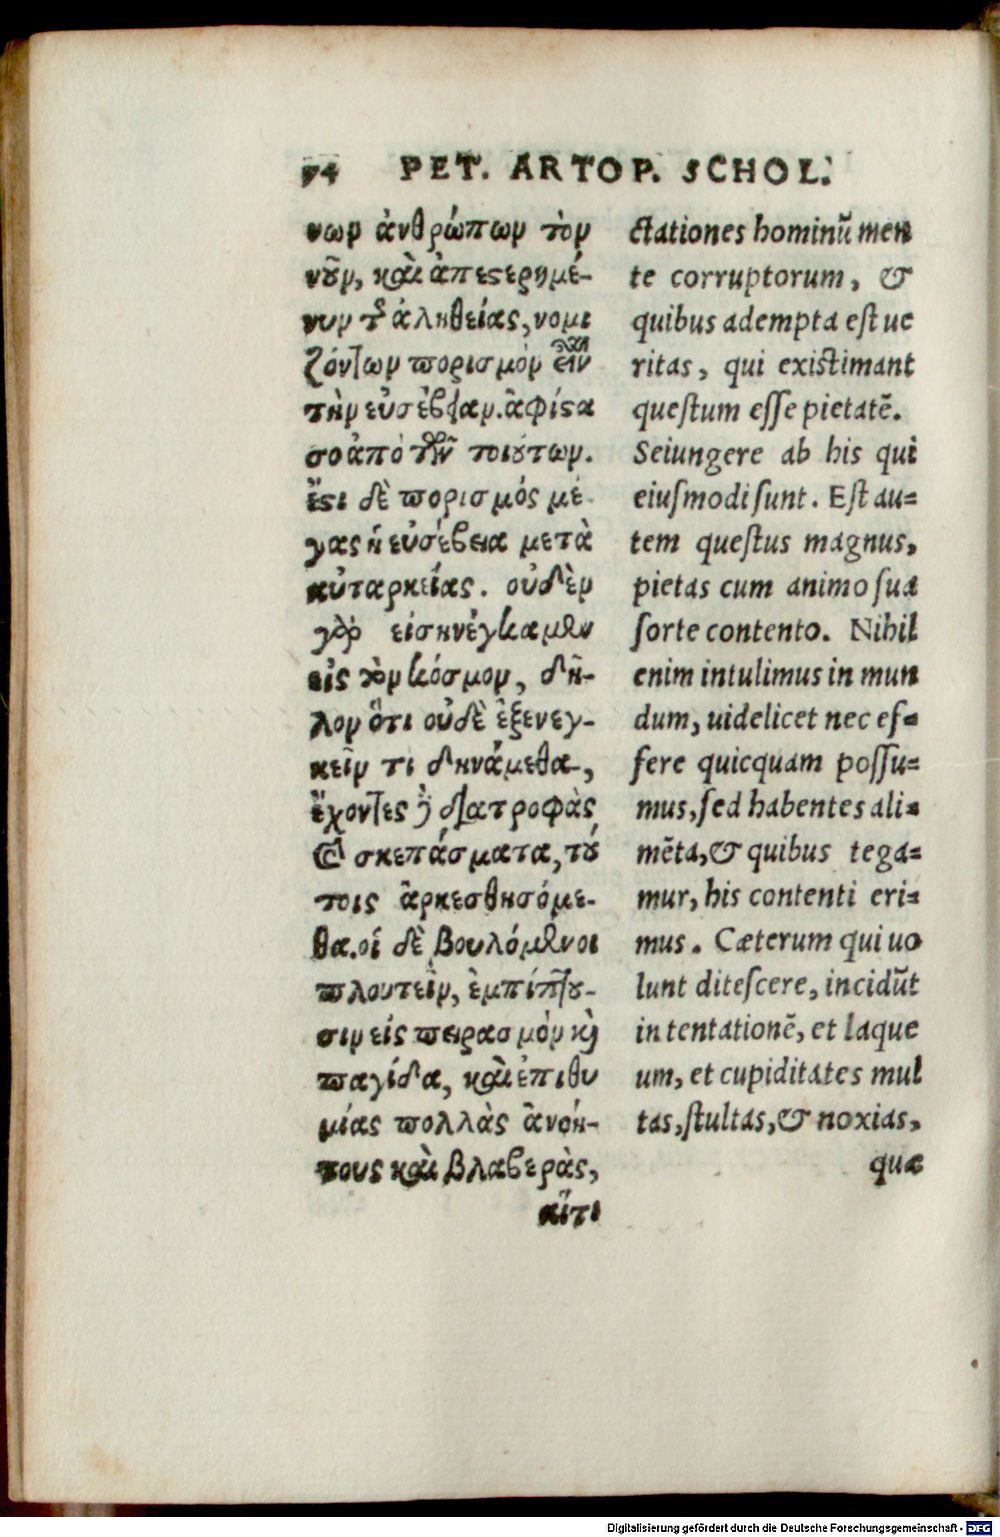 94 PET. ARTOP. SCHOL.
νων ἀνθρώπων τὸν
νοῦν, καὶ ἀπεστερημέ-
νων τῆς ἀληθείας, νομι
ζόντων πορισμὸν εἶναι
τὴν εὐσέβειαν. ἀφίστα
σο ἀπὸ τῶν τοιούτων.
ἔστι δὲ πορισμός μέ
γας ἡ εὐσέβεια μετὰ
αὐταρκείας. οὐδὲν
γὰρ εἰσηνέγκαμεν
εἰς τὸν κόσμον, δῆ-
λον ὅτι οὐδὲ ἐξενεγ-
κεῖν τι δηνάμεθα,
ἔχοντες δὲ διατροφὰς
καὶ σκεπάσματα, τού
τοις ἀρκεσθησόμε-
θα. οἱ δὲ βουλόμενοι
πλουτεῖν, ἐμπίπτου-
σιν εἰς πειρασμὸν καὶ
παγίδα, καὶ ἐπιθυ
μίας πολλὰς ἀνοή-
τους καὶ βλαβερὰς,
αἵτι
ctationes hominũ men
te corruptorum, &
quibus adempta est ue
ritas, qui existimant
questum esse pietatẽ.
Seiungere ab his qui
eiusmodi sunt. Est au=
tem questus magnus,
pietas cum animo sua
sorte contento. Nihil
enim intulimus in mun
dum, uidelicet nec ef=
fere quicquam possu=
mus, sed habentes ali=
mẽta, & quibus tega=
mur, his contenti eri=
mus. Cæterum qui uo
lunt ditescere, incidũt
in tentationẽ, et laque
um, et cupiditates mul
tas, stultas, & noxias,
quæ
Digitalisierung gefördert durch die Deutsche Forschungsgemeinschaft - DFG